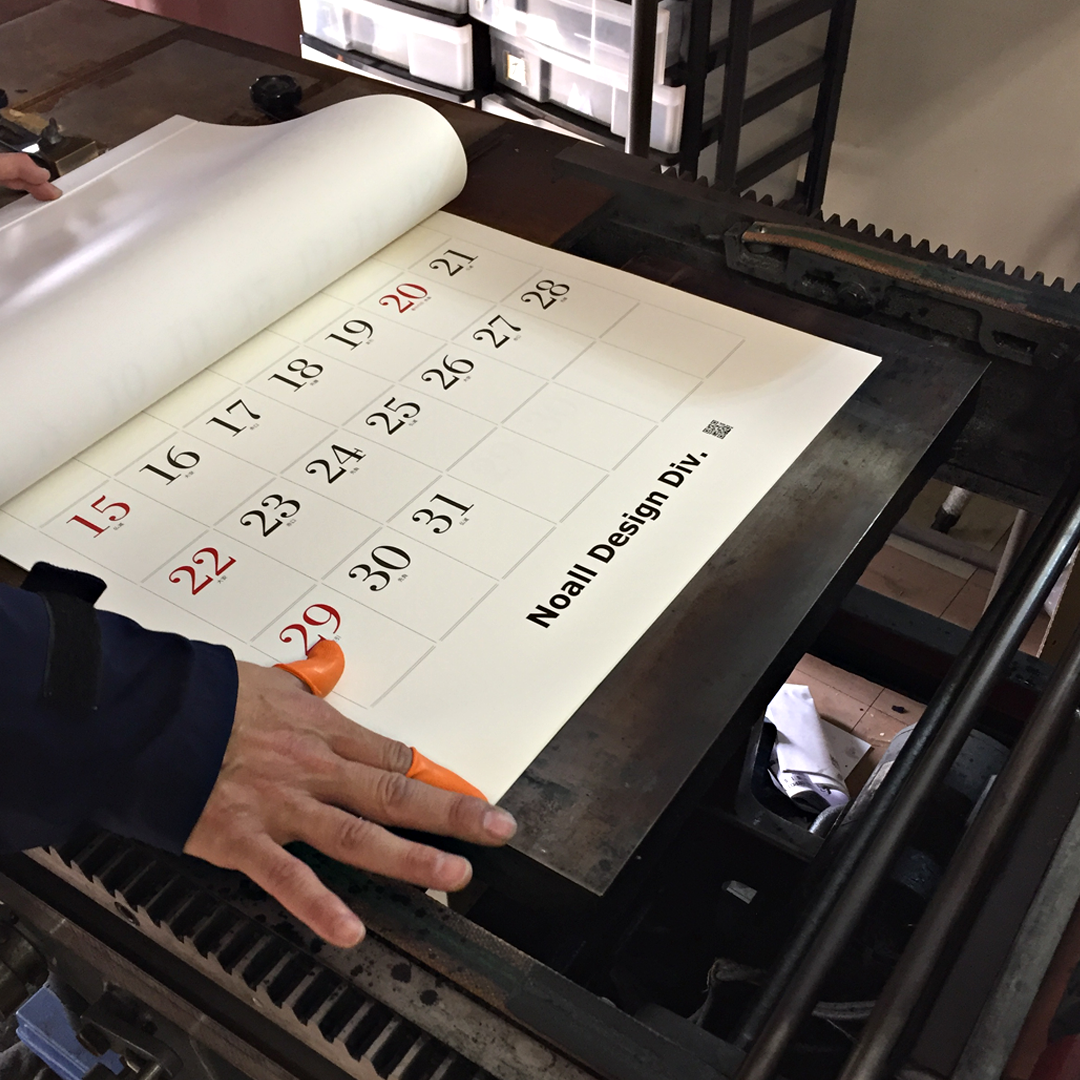 15 16 17 18 19 20 21
22 23 24 25 26 27 28
29 30 31
Noall Design Div.